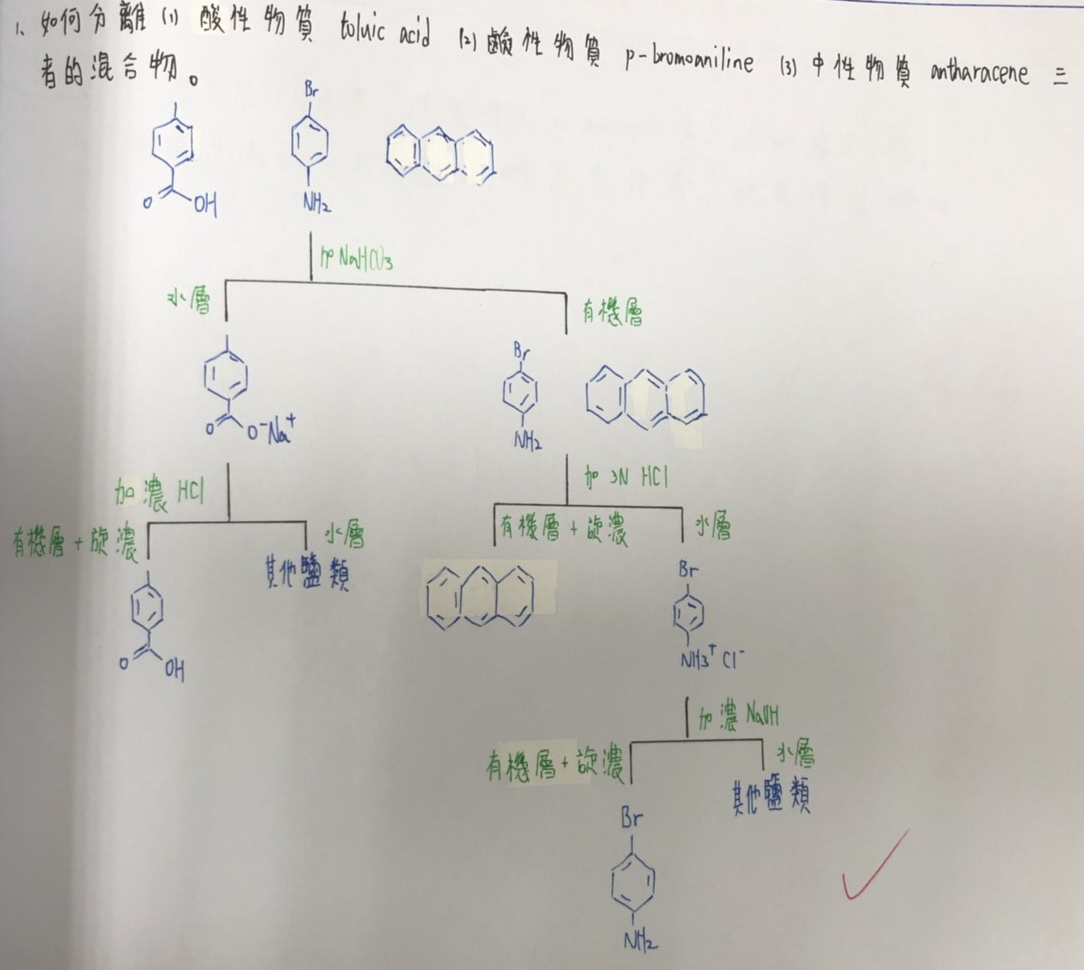 1、如何分離 (1) 酸性物質 toluic acid (2) 鹼性物質 p-bromoaniline (3) 中性物質 antharacene 三
者的混合物。
Br
O OH NH₂
加 NaHCO₃
水層 有機層
Br
O O⁻Na⁺ NH₂
加濃 HCl 加 3N HCl
有機層 + 旋濃 水層 有機層 + 旋濃 水層
其他鹽類 Br
O OH NH₃⁺ Cl⁻
加濃 NaOH
有機層 + 旋濃 水層
其他鹽類
Br
NH₂